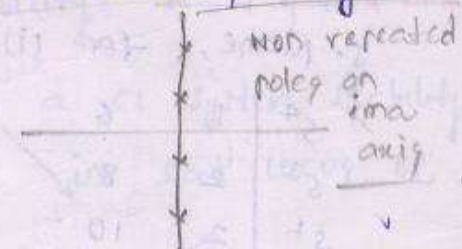 Non repeated
poles on
ima
axis